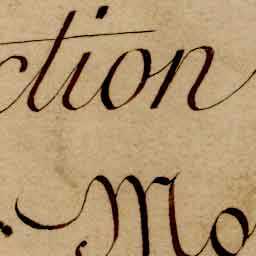 ction
Mo